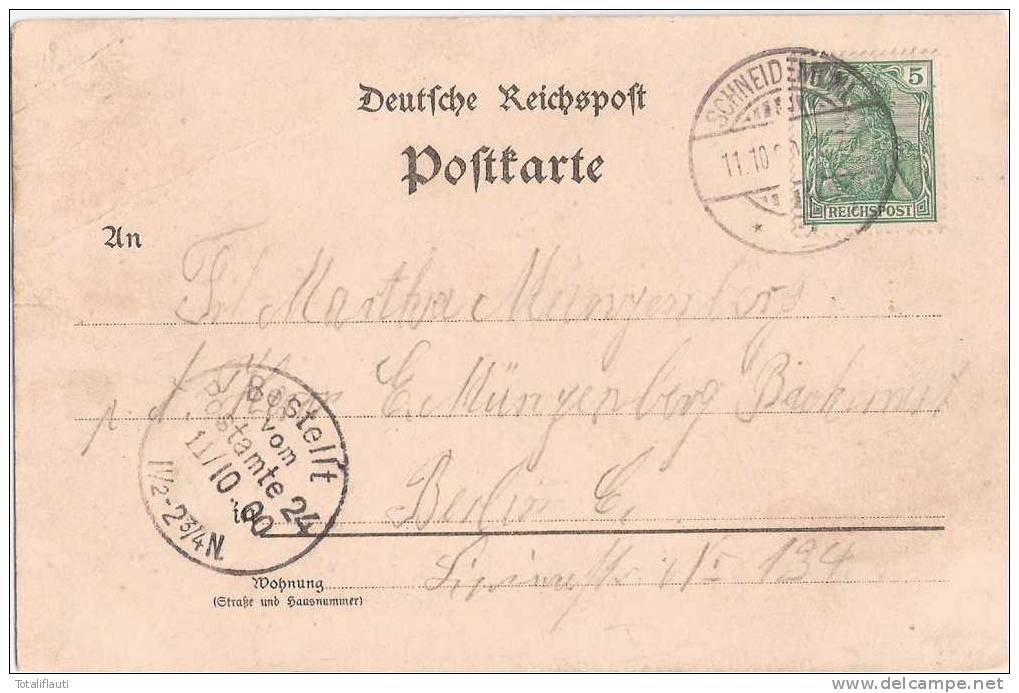 Deutsche Reichspost
Postkarte
SCHNEIDEMÜHL
11.10
5
REICHSPOST
An
Frl Martha Münzenberg
E. Münzenberg
Bestellt
vom
Postamte 24
11/10.00
1 1/2-2 3/4 N.
in
Berlin C.
Wohnung
134
(Straße und Hausnummer)
Totaliflauti
delcampe.net